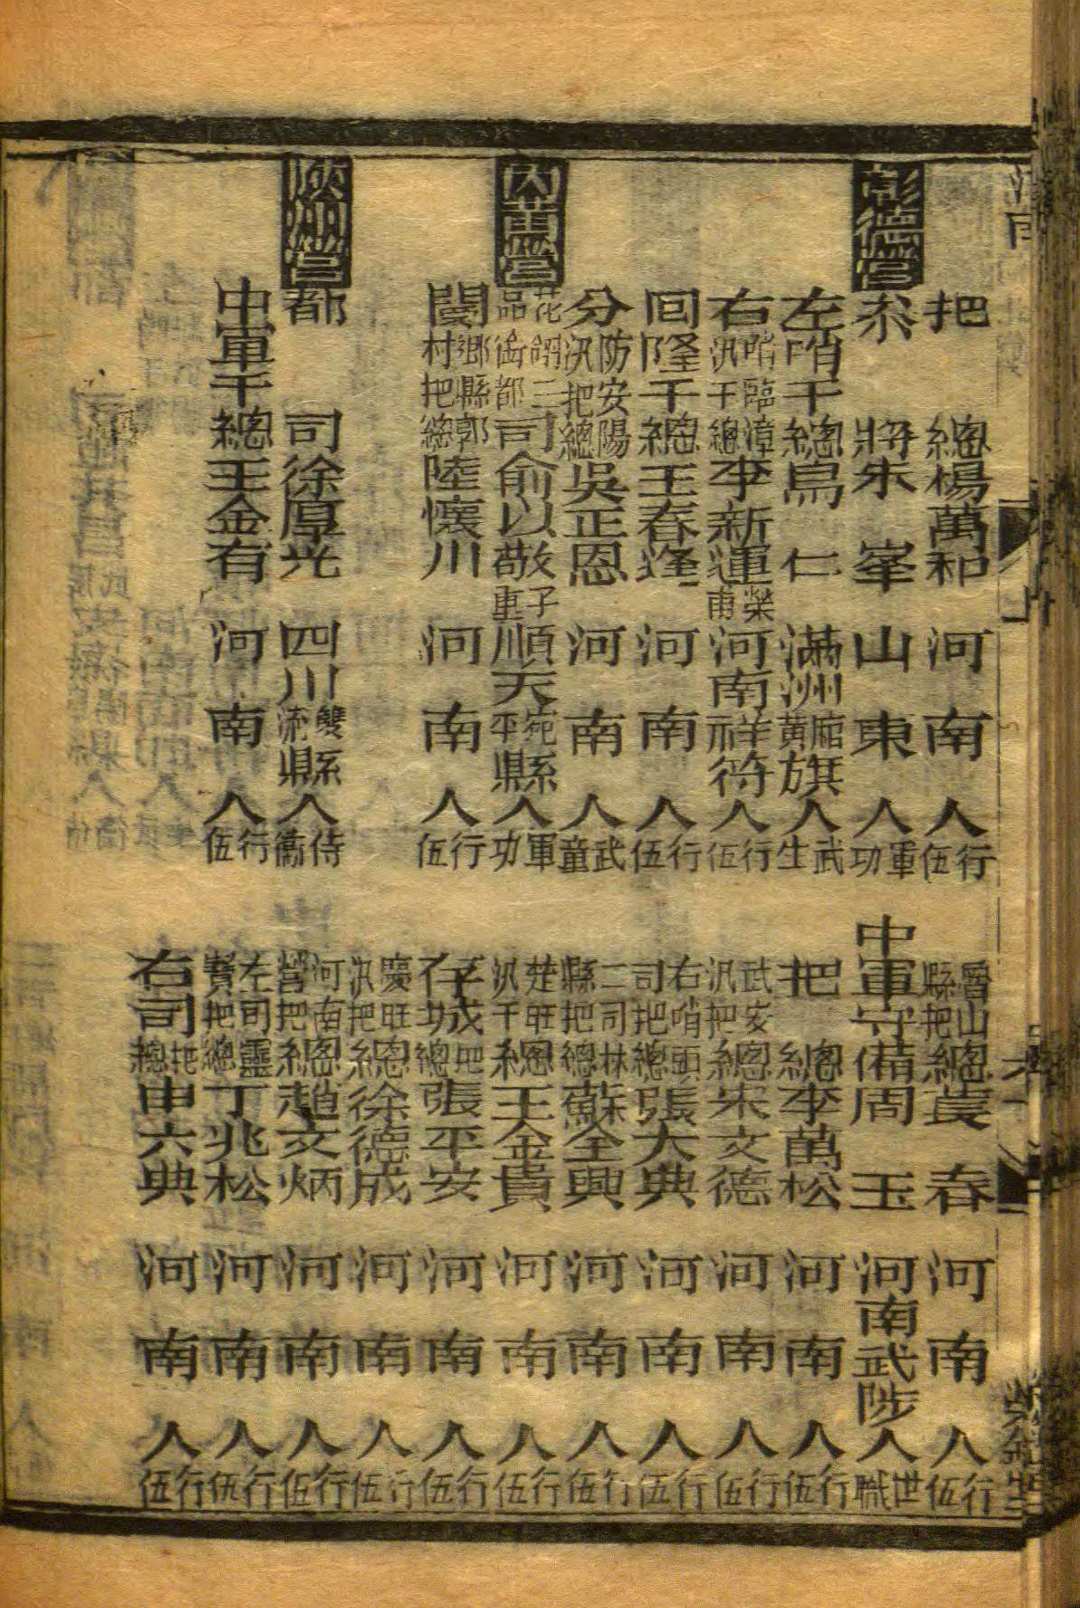 把總楊萬和河南人行伍
魯山縣把總晁春河南人行伍
彰德營
叅將朱峯山東人軍功
中軍守備周玉河南武陟人世職
左哨千總烏仁滿洲廂黃旗人武生
把總李萬松河南人行伍
右哨臨漳汛千總李新運榮甫河南祥符人行伍
武安汛把總宋文德河南人行伍
回隆千總王春逢河南人行伍
右哨頭司把總張大典河南人行伍
分防安陽汛把總吳正恩河南人武童
二司林縣把總蘇全興河南人行伍
內黃營
花翎三品銜都司俞以敬子重順天宛平縣人軍功
楚旺汛千總王金貴河南人行伍
閿鄉縣郭村把總陸懷川河南人行伍
存城把總張平安河南人行伍
慶旺汛把總徐德成河南人行伍
陝州營
都司徐厚光四川雙流縣人侍衞
河南營把總趙文炳河南人行伍
中軍千總王金有河南人行伍
左司靈寶把總丁兆松河南人行伍
右司把總申六典河南人行伍